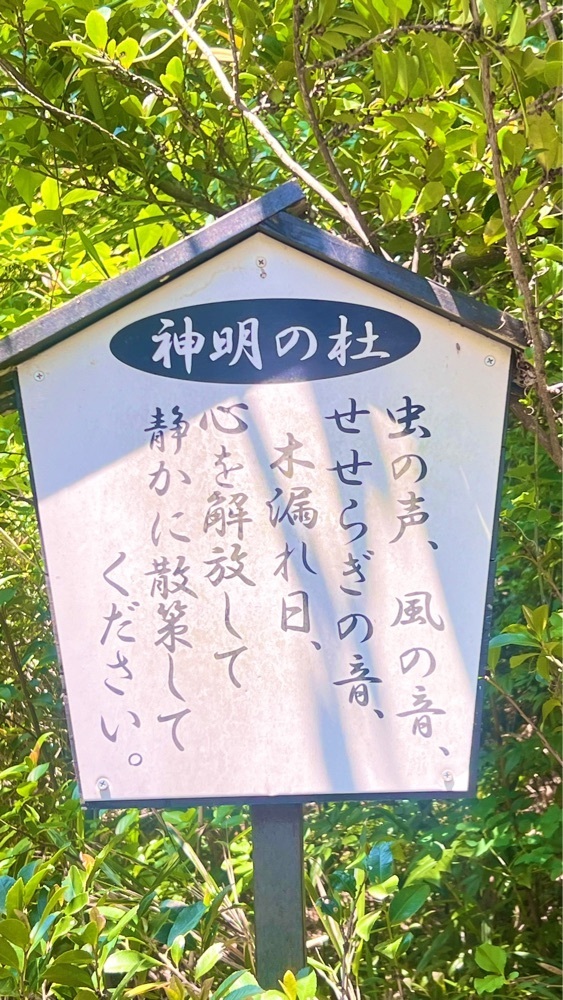 神明の杜
虫の声、風の音、
せせらぎの音、
木漏れ日、
心を解放して
静かに散策して
ください。